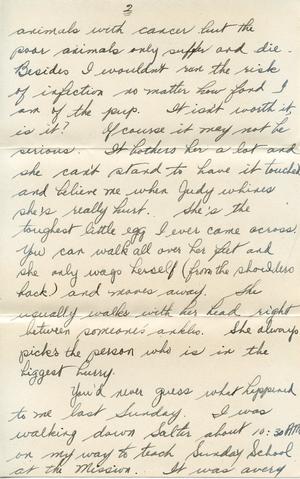 2
animals with cancer but the
poor animals only suffer and die.
Besides I wouldn't run the risk
of infiction no matter how fond I
am of the pup. It isn't worth it,
is it? Of course it may not be
serious. It bothers her a lot and
she can't stand to have it touched
and believe me when Judy whines
she's really hurt. She's the
toughest little egg I ever came across.
You can walk all over her feet and
she only wags herself (from the shoulders
back) and moves away. She
usually walks with her head right
between someone's ankles. She always
picks the person who is in the
biggest hurry.
You'd never guess what happened
to me last Sunday. I was
walking down Salter about 10:30 AM
on my way to teach Sunday School
at the Mission. It was a very